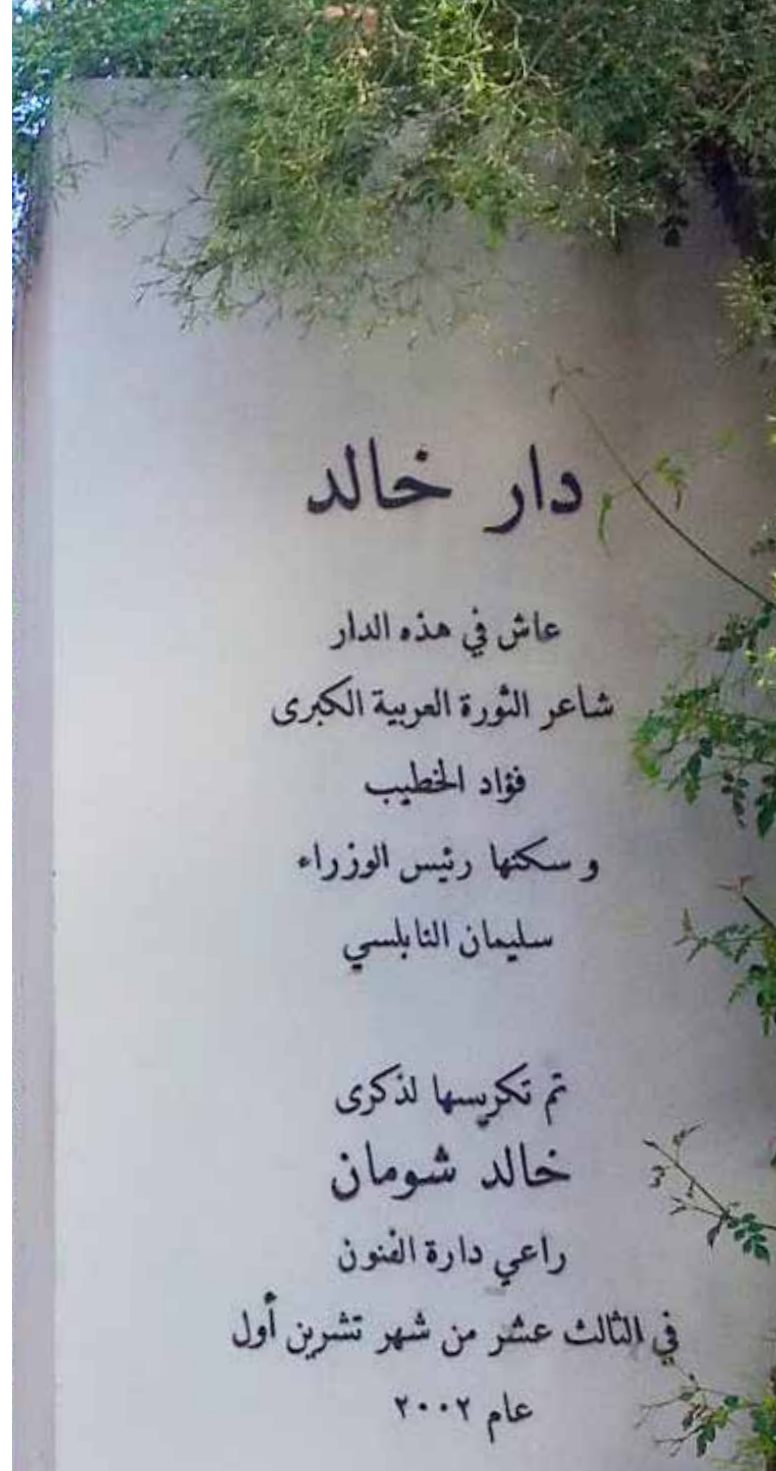 دار خالد
عاش في هذه الدار
شاعر الثورة العربية الكبرى
فؤاد الخطيب
و سكنها رئيس الوزراء
سليمان النابلسي
تم تكريسها لذكرى
خالد شومان
راعي دارة الفنون
في الثالث عشر من شهر تشرين أول
عام ٢٠٠٢